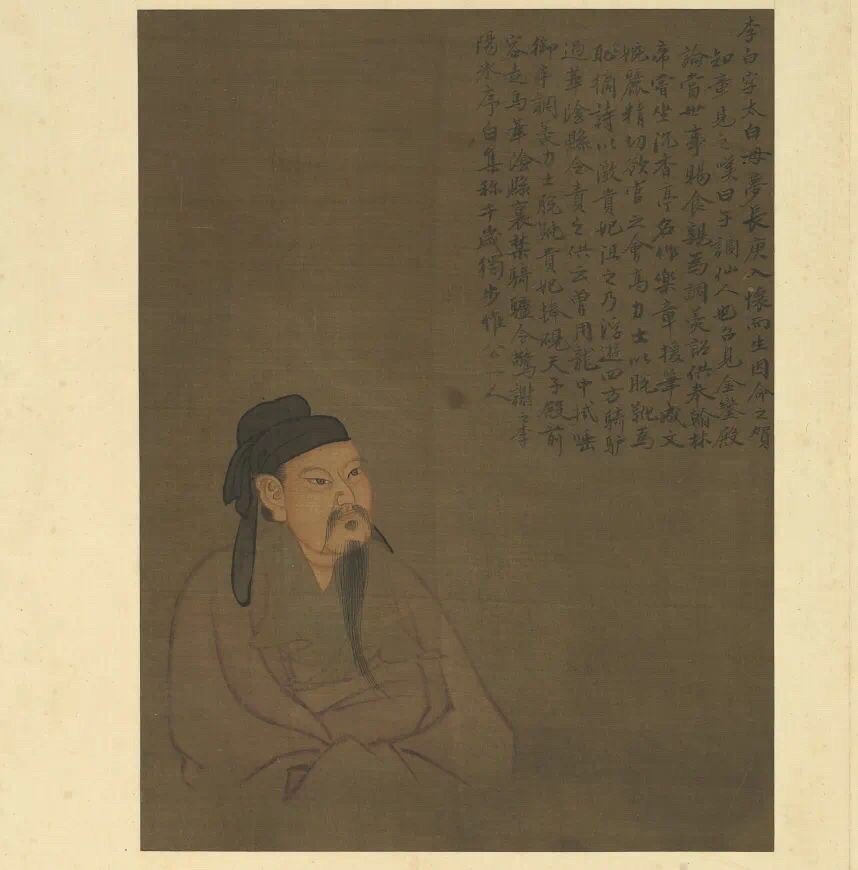 李白字太白母夢長庚入懷而生因命之賀
知章見之嘆曰子謫仙人也召見金鑾殿
論當世事賜食親為調羹詔供奉翰林
帝嘗坐沉香亭名作樂章援筆成文
婉麗精切欲官之會高力士以脫靴為
恥摘詩以激貴妃沮之乃浮遊四方騎驢
過華陰縣令責之供云曾用龍巾拭唾
御手調羹力士脫靴貴妃捧硯天子殿前
容走馬華陰縣裏禁騎驢令驚謝之李
陽冰序白集稱千歲獨步惟公一人